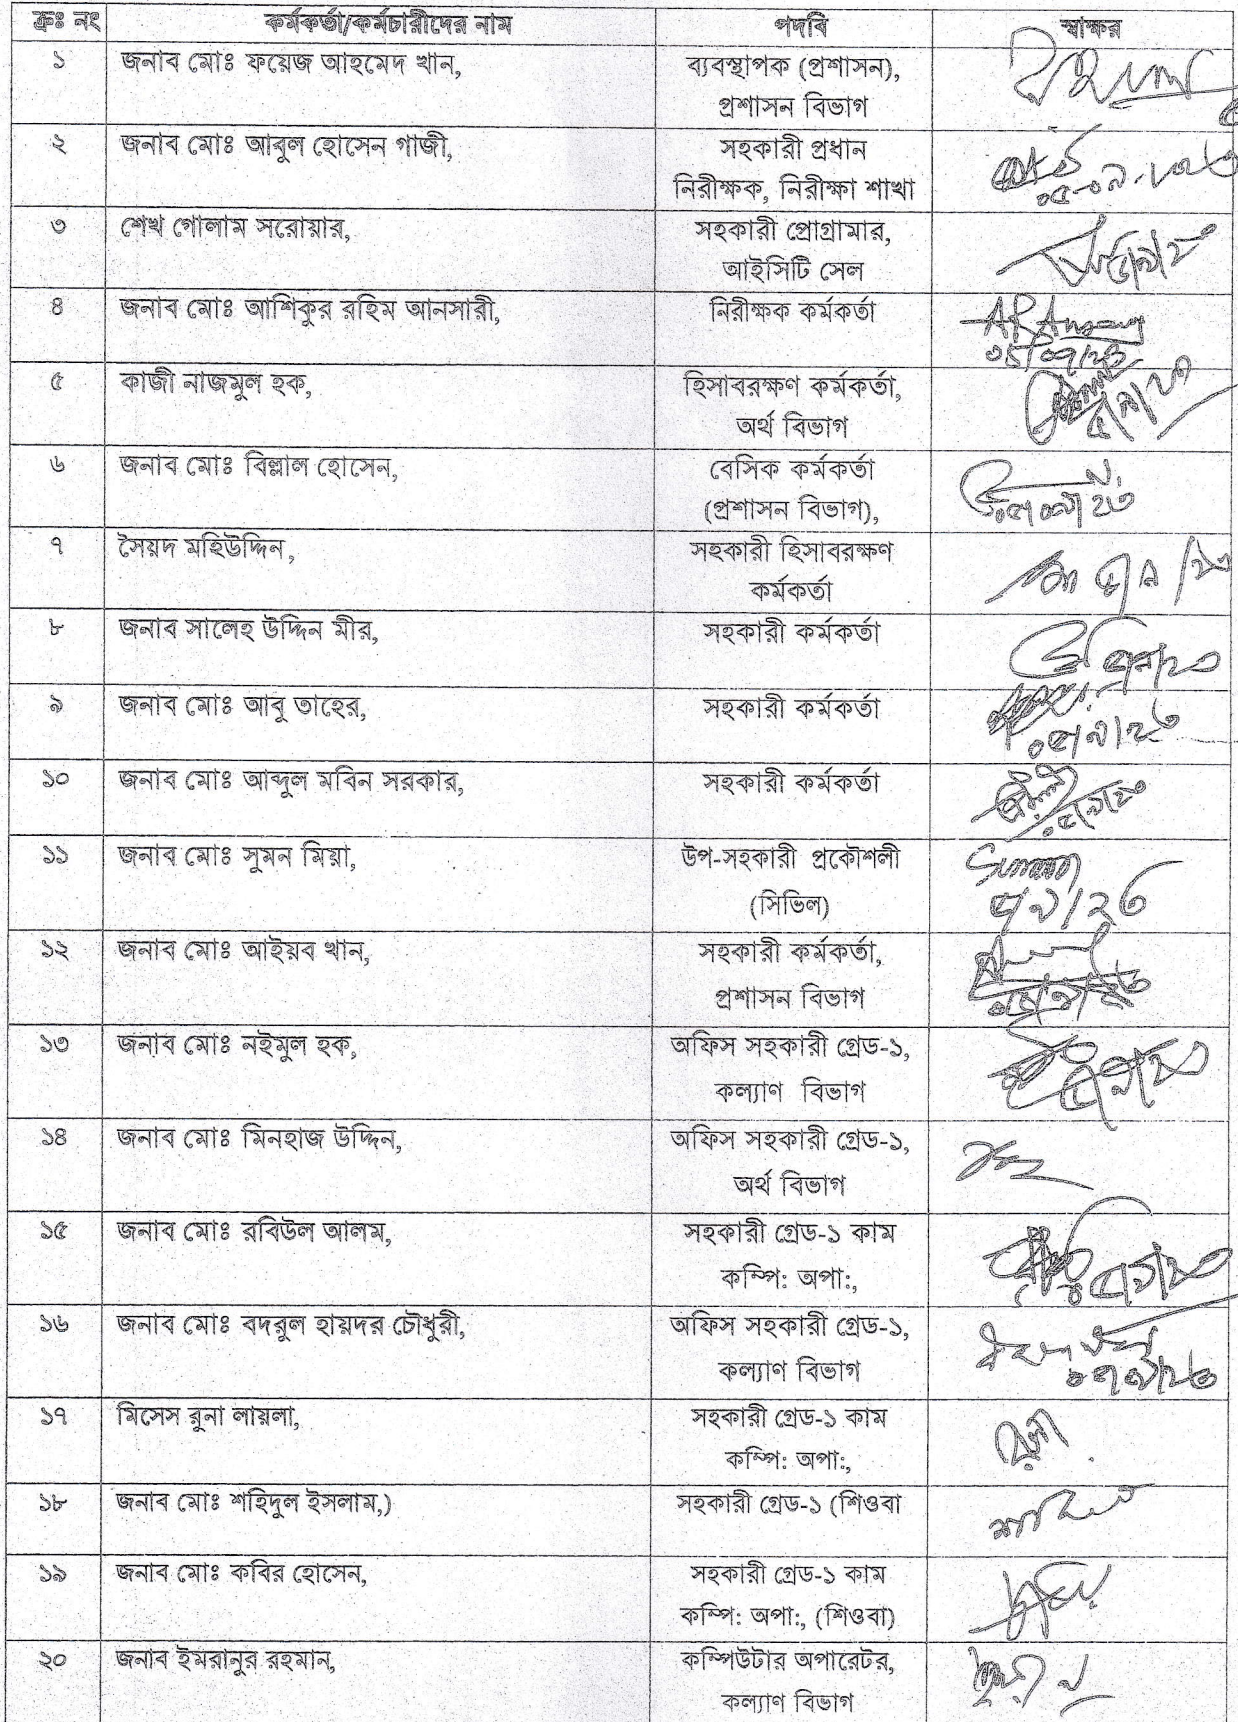 ক্রঃ নং কর্মকর্তা/কর্মচারীদের নাম পদবি স্বাক্ষর
১ জনাব মোঃ ফয়েজ আহমেদ খান, ব্যবস্থাপক (প্রশাসন),
প্রশাসন বিভাগ
২ জনাব মোঃ আবুল হোসেন গাজী, সহকারী প্রধান
নিরীক্ষক, নিরীক্ষা শাখা
৩ শেখ গোলাম সরোয়ার, সহকারী প্রোগ্রামার,
আইসিটি সেল
৪ জনাব মোঃ আশিকুর রহিম আনসারী, নিরীক্ষক কর্মকর্তা
৫ কাজী নাজমুল হক, হিসাবরক্ষণ কর্মকর্তা,
অর্থ বিভাগ
৬ জনাব মোঃ বিল্লাল হোসেন, বেসিক কর্মকর্তা
(প্রশাসন বিভাগ),
৭ সৈয়দ মহিউদ্দিন, সহকারী হিসাবরক্ষণ
কর্মকর্তা
৮ জনাব সালেহ উদ্দিন মীর, সহকারী কর্মকর্তা
৯ জনাব মোঃ আবু তাহের, সহকারী কর্মকর্তা
১০ জনাব মোঃ আব্দুল মবিন সরকার, সহকারী কর্মকর্তা
১১ জনাব মোঃ সুমন মিয়া, উপ-সহকারী প্রকৌশলী
(সিভিল)
১২ জনাব মোঃ আইয়ব খান, সহকারী কর্মকর্তা,
প্রশাসন বিভাগ
১৩ জনাব মোঃ নইমুল হক, অফিস সহকারী গ্রেড-১,
কল্যাণ বিভাগ
১৪ জনাব মোঃ মিনহাজ উদ্দিন, অফিস সহকারী গ্রেড-১,
অর্থ বিভাগ
১৫ জনাব মোঃ রবিউল আলম, সহকারী গ্রেড-১ কাম
কম্পি: অপা:,
১৬ জনাব মোঃ বদরুল হায়দর চৌধুরী, অফিস সহকারী গ্রেড-১,
কল্যাণ বিভাগ
১৭ মিসেস রুনা লায়লা, সহকারী গ্রেড-১ কাম
কম্পি: অপা:,
১৮ জনাব মোঃ শহিদুল ইসলাম,) সহকারী গ্রেড-১ (শিওবা
১৯ জনাব মোঃ কবির হোসেন, সহকারী গ্রেড-১ কাম
কম্পি: অপা:, (শিওবা)
২০ জনাব ইমরানুর রহমান, কম্পিউটার অপারেটর,
কল্যাণ বিভাগ